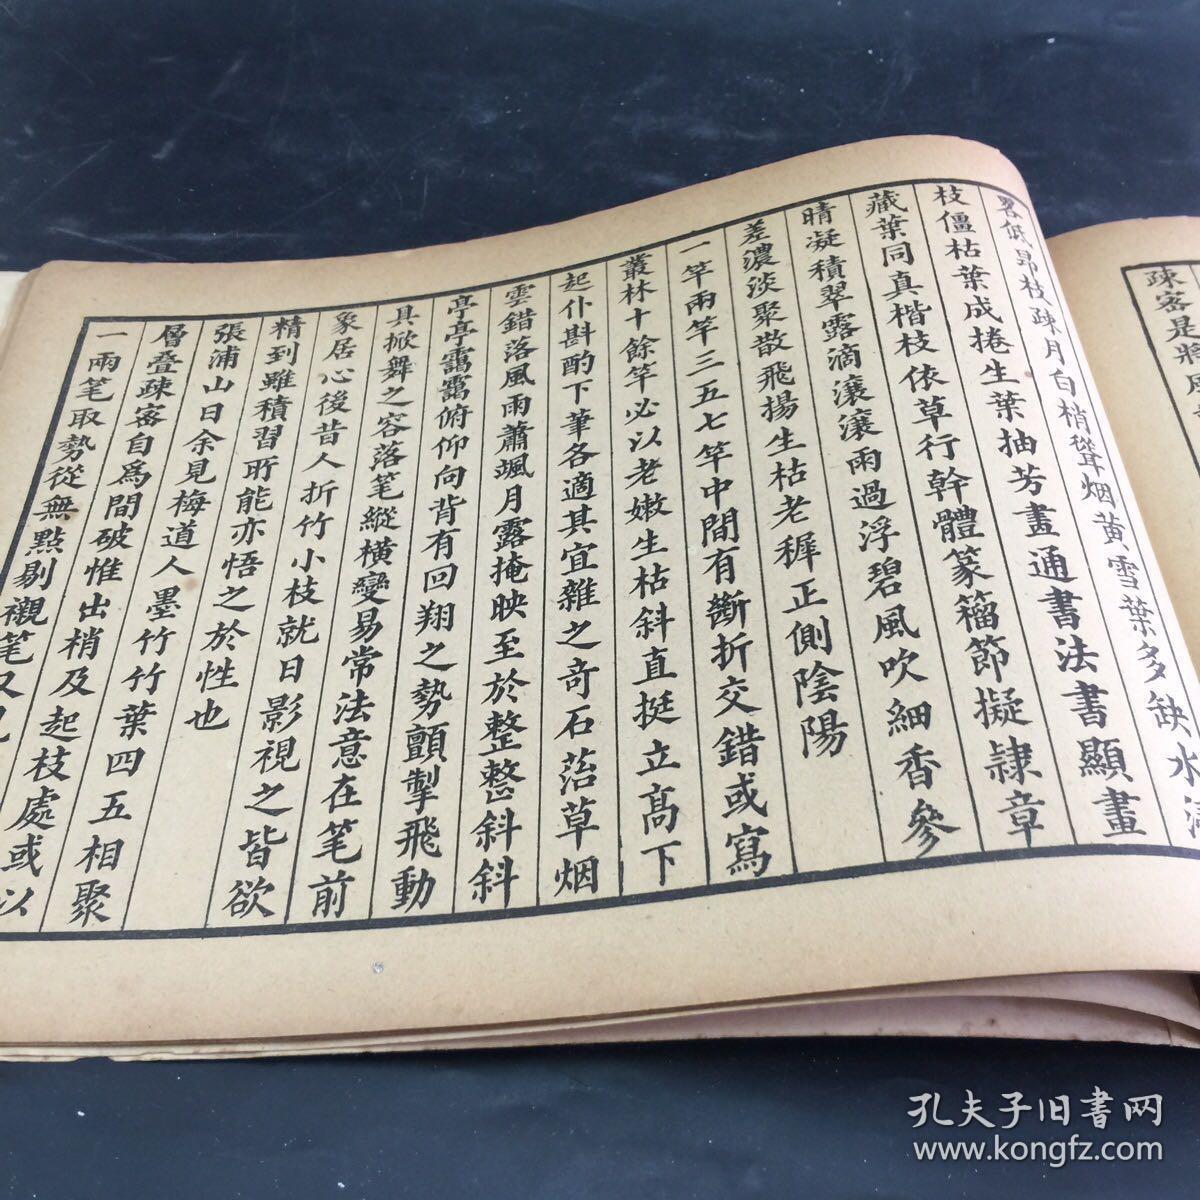 疎密是將風
畧低昂枝疎月白梢聳烟黄雪葉多缺水
枝僵枯葉成捲生葉抽芳畫通書法書顯畫
藏葉同真楷枝依草行幹體篆籀節擬隷章
晴凝積翠露滴瀼瀼雨過浮碧風吹細香參
差濃淡聚散飛揚生枯老穉正側陰陽
一竿兩竿三五七竿中間有斷折交錯或寫
叢林十餘竿必以老嫩生枯斜直挺立高下
起仆斟酌下筆各適其宜雜之奇石落草烟
雲錯落風雨蕭颯月露掩映至於整整斜斜
亭亭靄靄俯仰向背有回翔之勢顫掣飛動
具掀舞之容落笔縱橫變易常法意在笔前
象居心後昔人折竹小枝就日影視之皆欲
精到雖積習所能亦悟之於性也
張浦山曰余見梅道人墨竹竹葉四五相聚
層叠疎密自爲間破惟出梢及起枝處或以
一兩笔取勢從無點剔襯笔又
孔夫子旧书网
www.kongfz.com